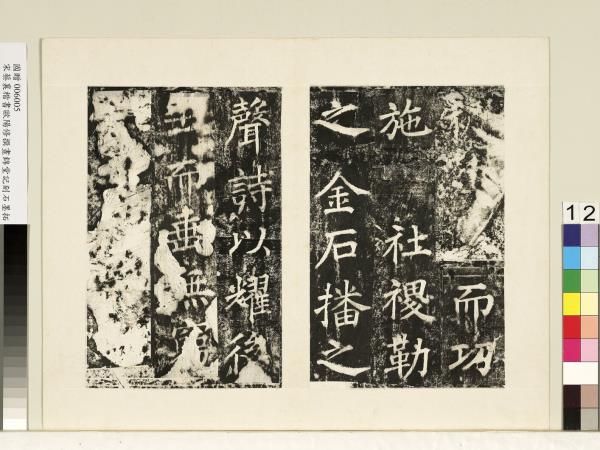 而功
施社稷勒
之金石播之
聲詩以耀後
世而垂無窮
國贈 006005
宋蔡襄楷書歐陽修撰晝錦堂記刻石墨拓
12